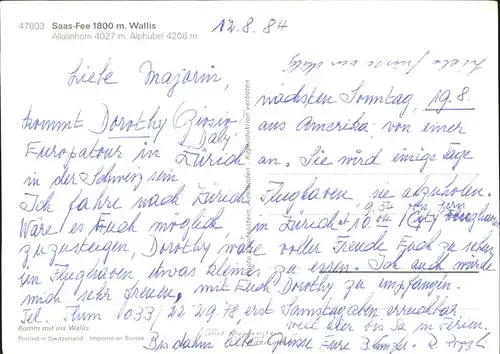 47803 Saas-Fee 1800 m. Wallis
Allalinhorn 4027 m. Alphubel 4206 m
12.8.84
Liebe Majorin,
kommt Dorothy
Daly
Europatour in Zürich
in der Schweiz sein
Ich fahre nach Zürich
Wäre es Euch möglich,
zuzusteigen, Dorothy wäre voller Freude Euch zu sehen
im Flughafen etwas kleines zu essen. Ich auch würde
mich sehr freuen, mit Euch Dorothy zu empfangen.
Tel. Thun 033/22 29 78 erst Samstagabend erreichbar,
weil über bis Sa in Ferien.
Bis dahin liebe Grüsse Eure
nächsten Sonntag, 19.8.
aus Amerika, von einer
an. Sie wird einige Tage
Flughafen, sie abzuholen.
9.54 von Bern
in Zürich 10.54 (City
Reproduktion verboten
Komm mit ins Wallis
Printed in Switzerland - Imprimé en Suisse